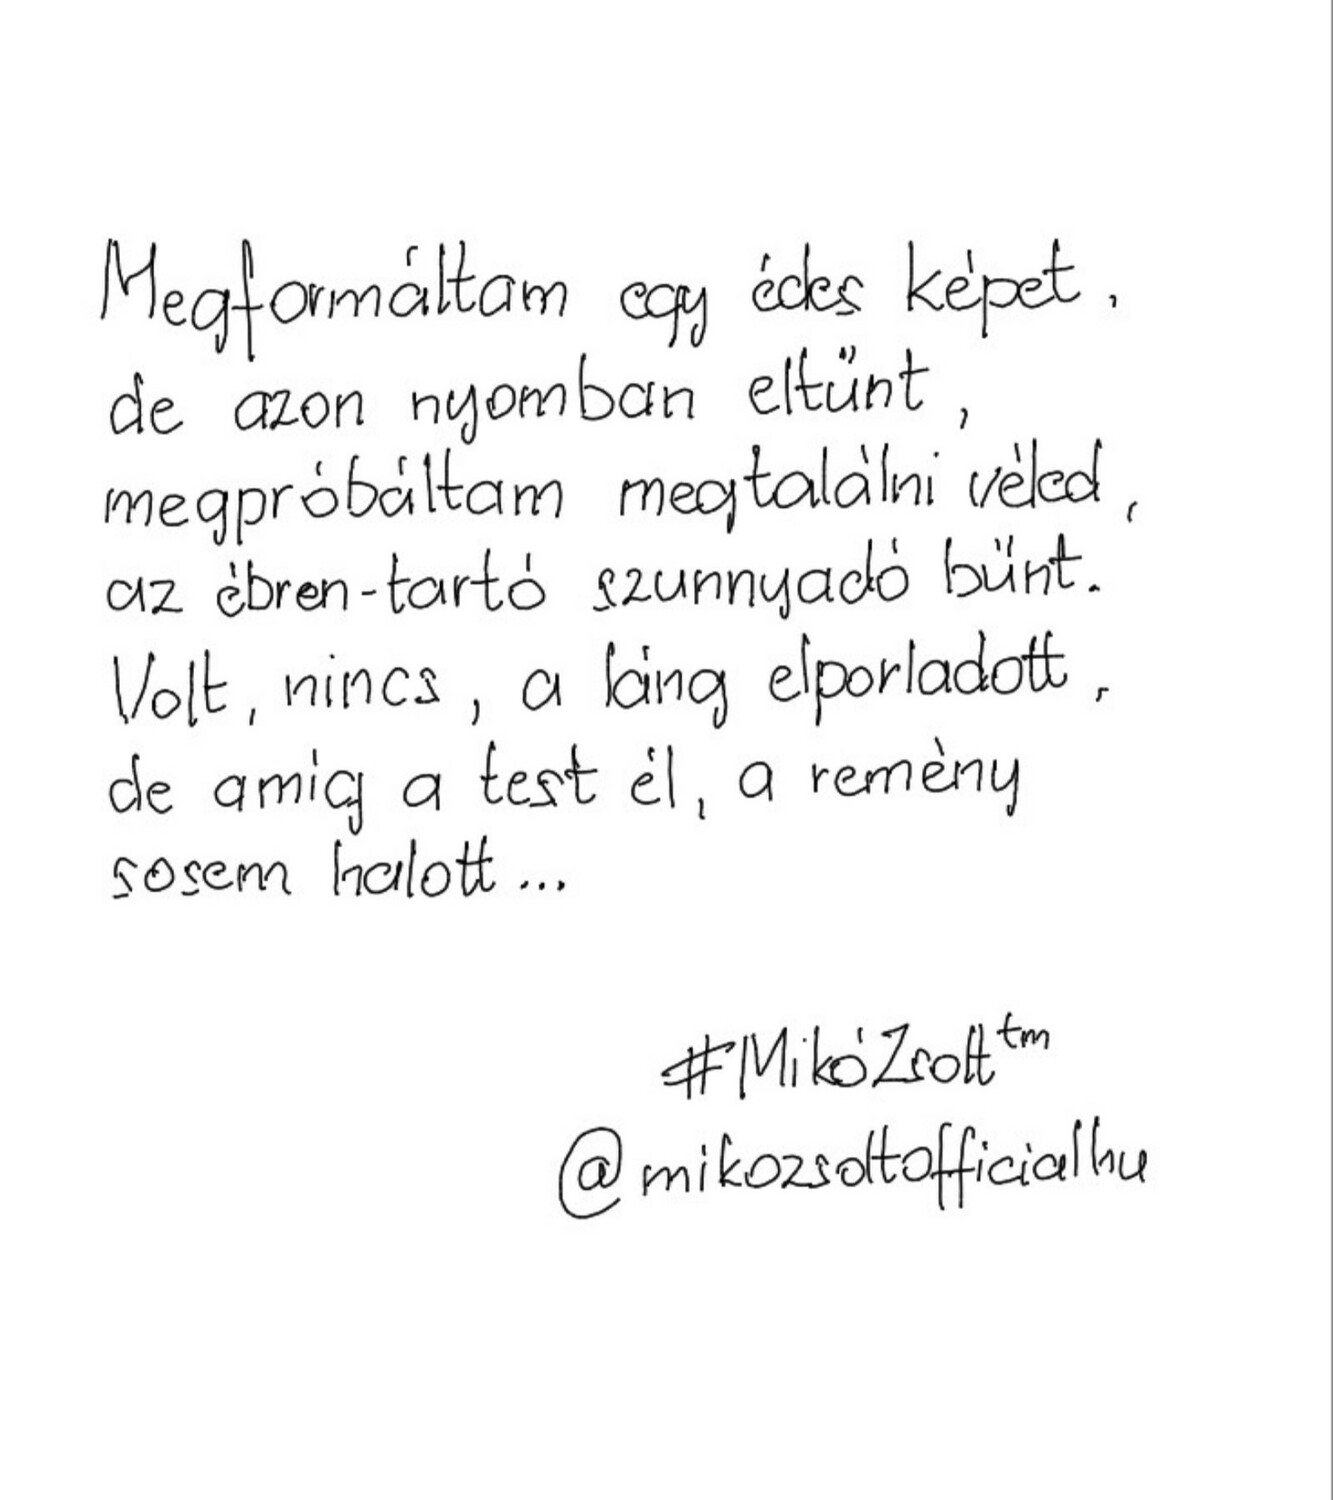 Megformáltam egy édes képet,
de azon nyomban eltűnt,
megpróbáltam megtalálni véled,
az ébren-tartó szunnyadó bűnt.
Volt, nincs, a láng elporladott,
de amig a test él, a remény
sosem halott...
#MikóZsolt™
@mikozsoltofficialhu